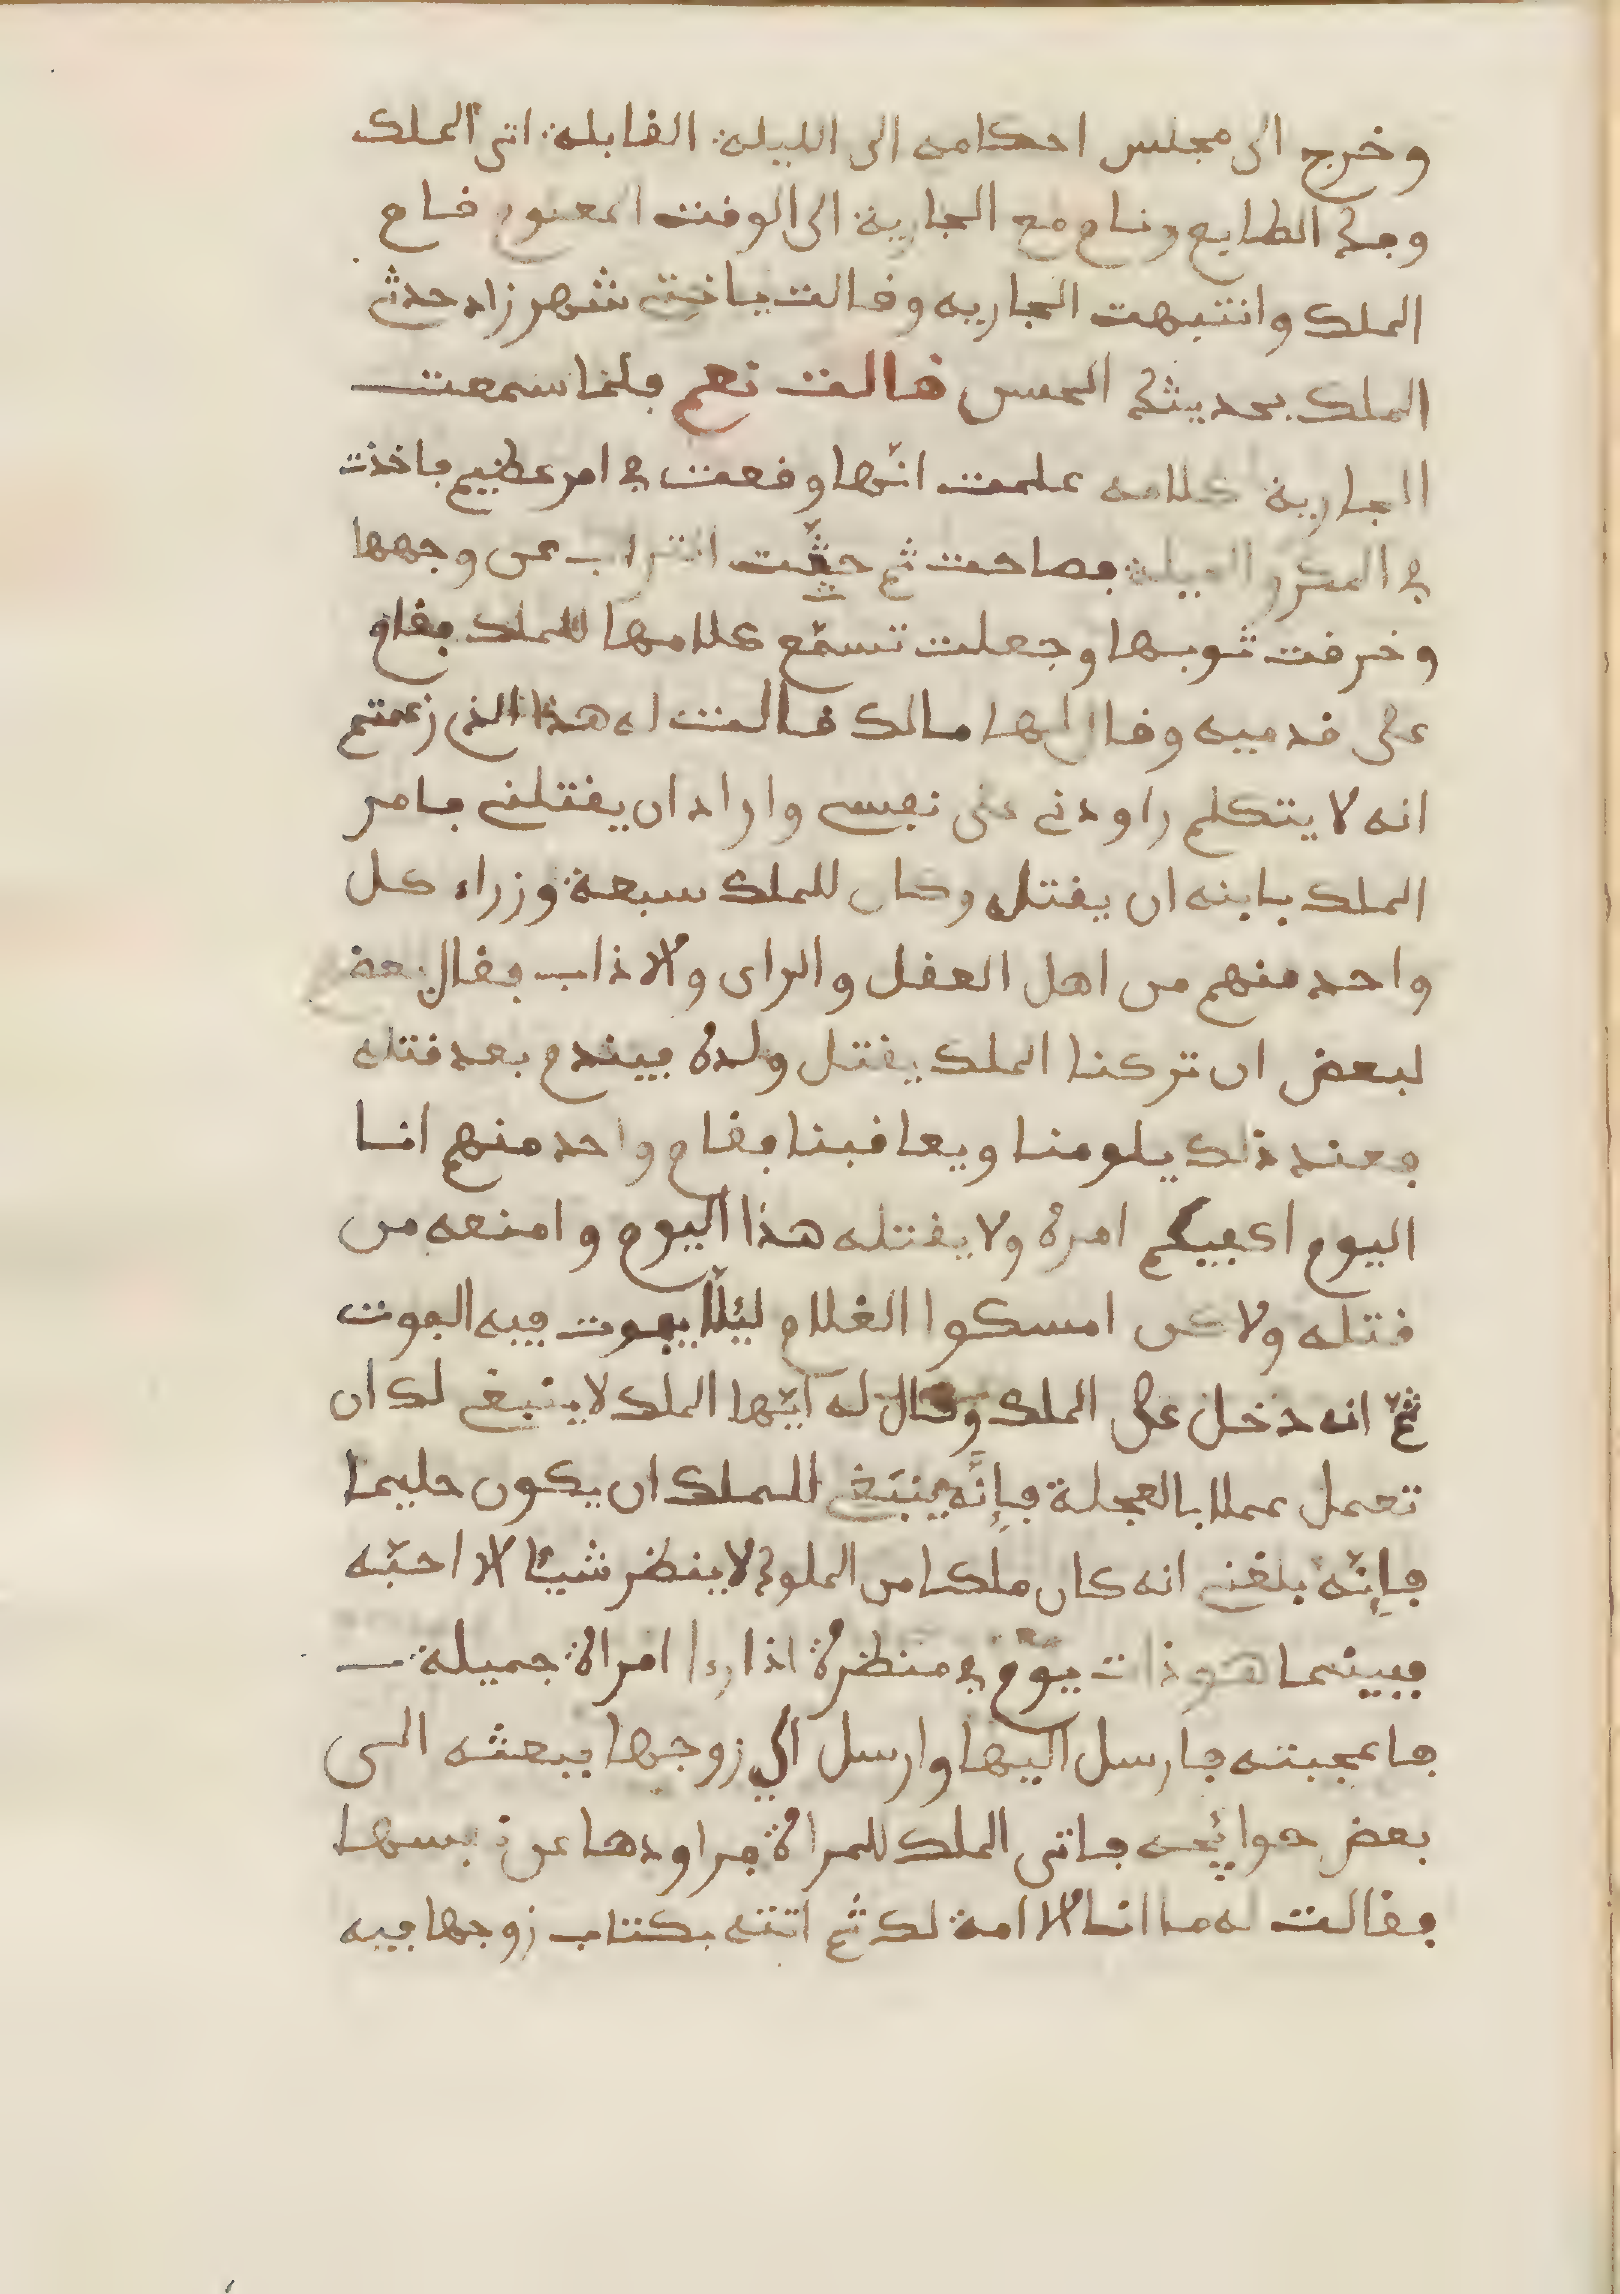 وخرج الى مجلس احكامه الى الليلة القابلة اتى الملك
وفك الطابع ونام مع الجارية الى الوقت المعلوم قام
الملك وانتبهت الجاريه وقالت ياختي شهرزاد حدثي
الملك بحديثك الحسن قالت نعم فلما سمعت
الجارية كلامه علمت انّها وقعت في امر عظيم فاخذت
في المكر والحيلة فصاحت ثم حثّت التراب عن وجهها
وخرقت ثوبها وجعلت تسمّع كلامها للملك فقام
على قدميه وقال لها مالك قالت له هذا الذي زعمتم
انه لا يتكلم راودني عني نفسي واراد ان يقتلني فامر
الملك بابنه ان يقتل وكان للملك سبعة وزراء كل
واحد منهم من اهل العقل والراى والاذاب فقال بعض
لبعض ان تركنا الملك يقتل ولده فيندم بعد قتله
فعند ذلك يلومنا ويعاقبنا فقام واحد منهم انا
اليوم اكفيكم امره ولا يقتله هذا اليوم وامنعه من
قتله ولاكن امسكوا الغلام ليلّا يفوت فيه الفوت
ثمّ انه دخل على الملك وقال له ايّها الملك لا ينبغي لك ان
تعمل عملا بالعجلة فإنّه ينبَغي للملك ان يكون حليما
فإنّه بلغني انه كان ملكا من الملوك لا ينظر شيئا الا احبّه
فبينما هو ذات يوم في منظرة اذا رءا امراة جميلة
فاعجبته فارسل اليها وارسل الي زوجها يبعثه الى
بعض حوائجه فاتى الملك للمراة فراودها عن نفسها
فقالت له ما انا الا امة لك ثم اتته بكتاب زوجها فيه